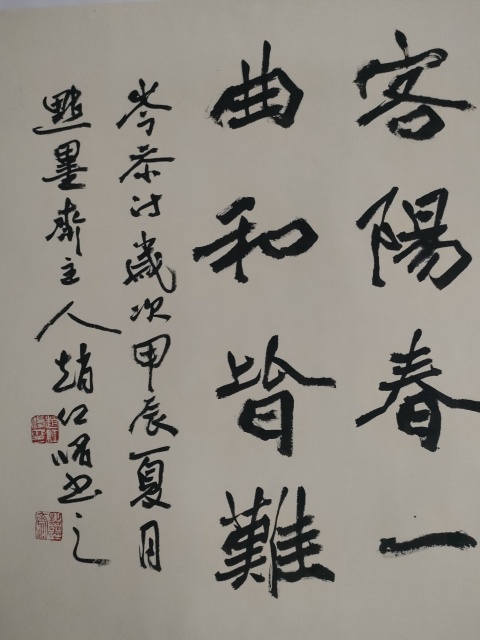 客陽春一
曲和皆難
岑参詩歲次甲辰夏月
點墨齋主人趙仁嵋书之